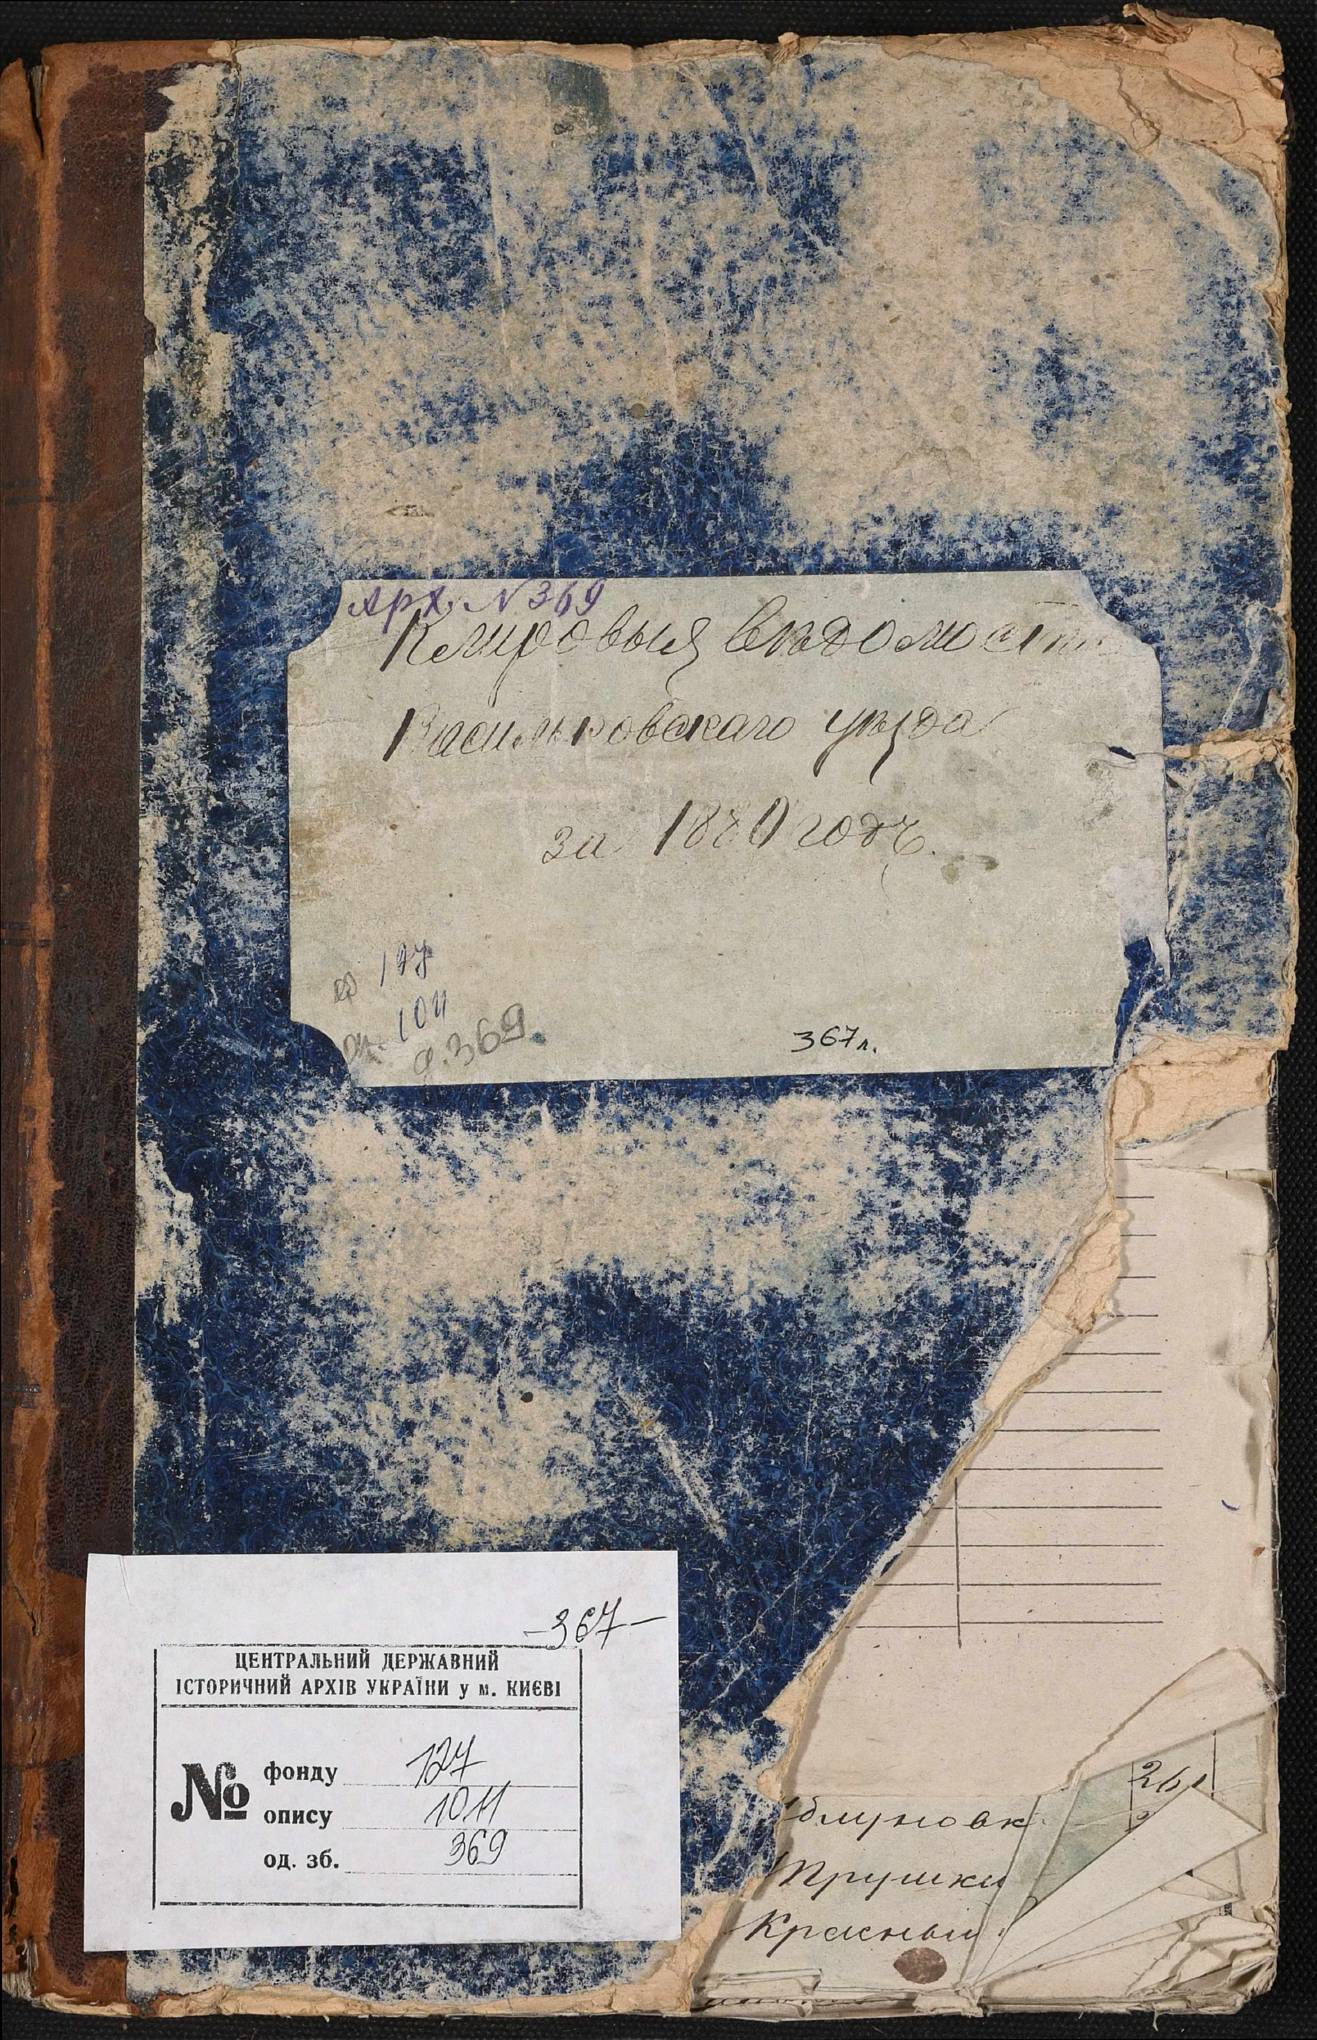 Арх. № 369
Клировыя ведомости
Васильковскаго уезда
за 1880 годъ.
ф 127
оп. 1011
д. 369
367 л.
-367-
ЦЕНТРАЛЬНИЙ ДЕРЖАВНИЙ
ІСТОРИЧНИЙ АРХІВ УКРАЇНИ у м. КИЄВІ
№
фонду 127
опису 1011
од. зб. 369
261
Трушки
Красный